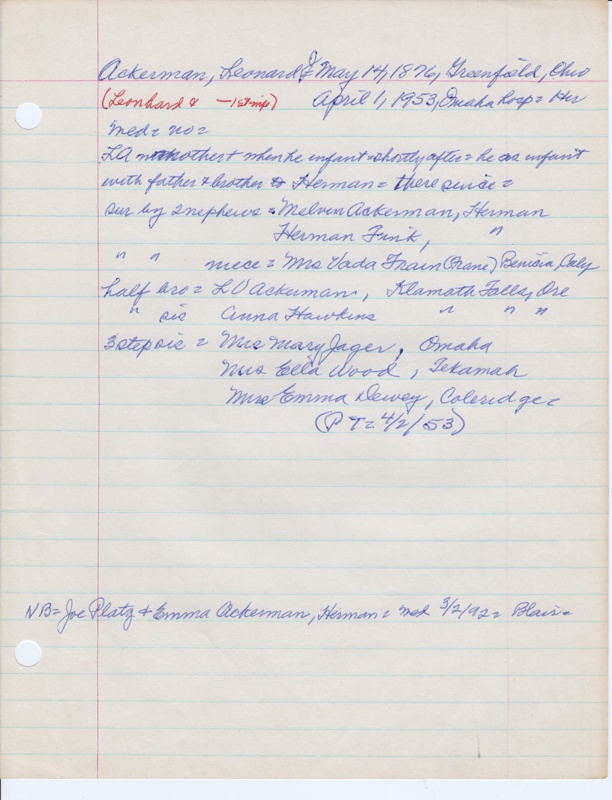 Ackerman, Leonard J May 14, 1876, Greenfield, Ohio
(Leonhard - 1st imp) April 1, 1953, Omaha hosp = Her
med = no =
LA mother + when he infant = shortly after = he as infant
with father & brother Herman = there since =
sur by 2 nephews = Melvin Ackerman, Herman
Herman Fink, "
" " niece = Mrs Vada Frain (Crane) Benicia, Caly
half bro = L V Ackerman, Klamath Falls, Ore
" sis Anna Hawkins " " "
3 step sis = Mrs Mary Jager, Omaha
Mrs Ella Wood, Tekamah
Mrs Emma Dewey, Coleridge =
(P T = 4/2/53)
NB = Joe Platz & Emma Ackerman, Herman = med 3/2/92 = Blair =